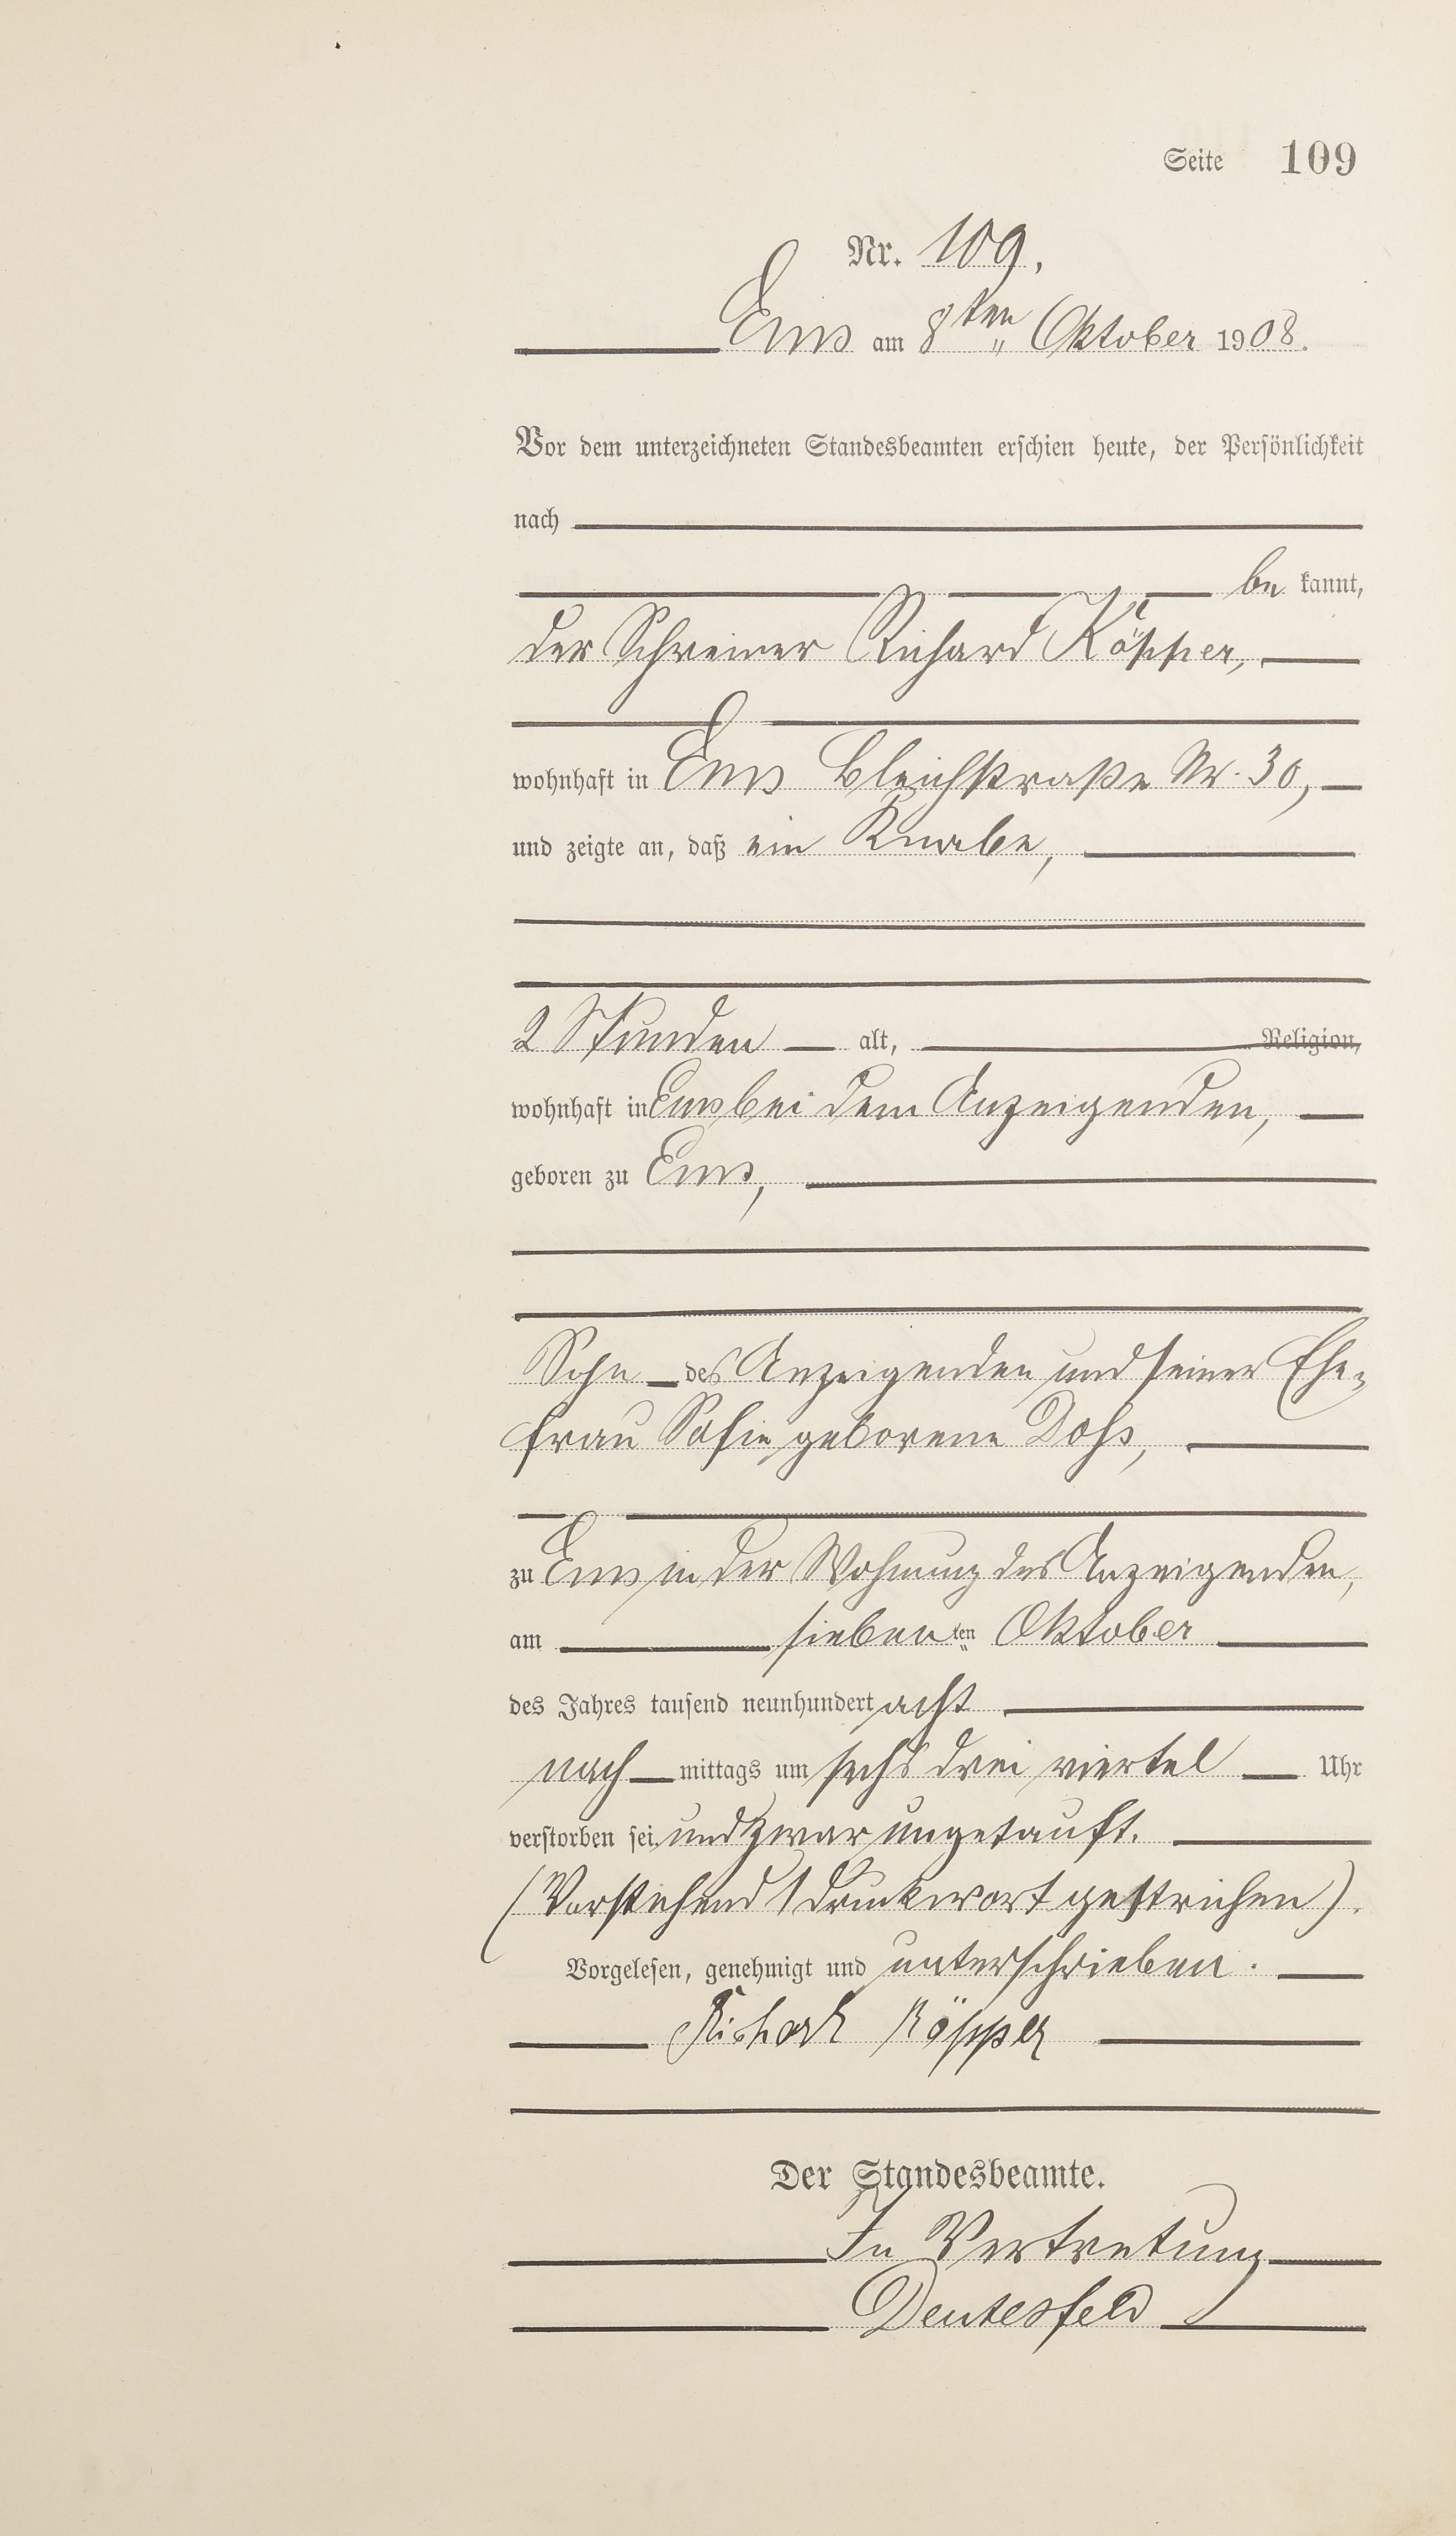 Seite 109
Nr. 109.
Ems am 8ten Oktober 1908.
Vor dem unterzeichneten Standesbeamten erschien heute, der Persönlichkeit
nach
be kannt,
der Schreiner Richard Köpper,
wohnhaft in Ems Bleichstraße Nr. 30,
und zeigte an, daß ein Knabe,
2 Stunden alt, Religion,
wohnhaft in Ems bei dem Anzeigenden,
geboren zu Ems,
Sohn des Anzeigenden und seiner Ehe-
frau Sofie geborene Doss,
zu Ems in der Wohnung des Anzeigenden,
am siebenten Oktober
des Jahres tausend neunhundert acht
nach mittags um sechs drei viertel Uhr
verstorben sei, und zwar ungetauft.
(Vorstehend 1 Druckwort gestrichen).
Vorgelesen, genehmigt und unterschrieben.
Richard Köpper
Der Standesbeamte.
In Vertretung
Deutesfeld